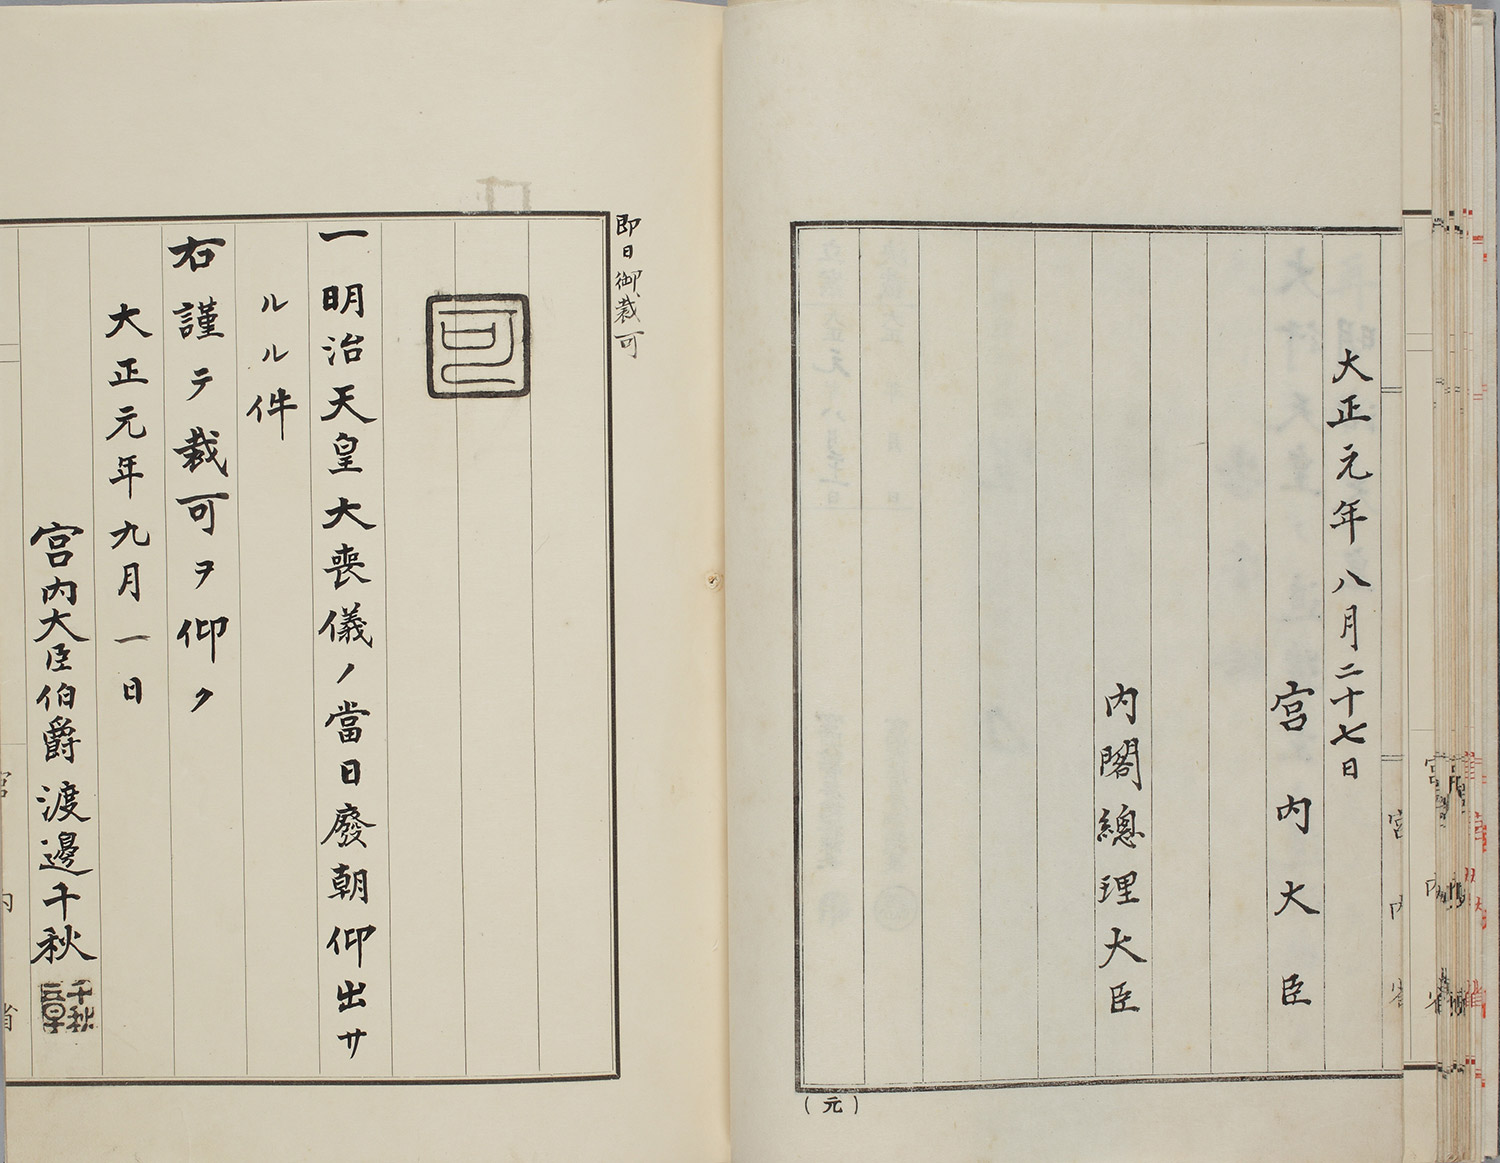 大正元年八月二十七日
宮内大臣
内閣總理大臣
(元)
宮内省
即日御裁可
可
一明治天皇大喪儀ノ當日廢朝仰出サ
ルル件
右謹テ裁可ヲ仰ク
大正元年九月一日
宮内大臣伯爵渡邊千秋
千秋
宮内省